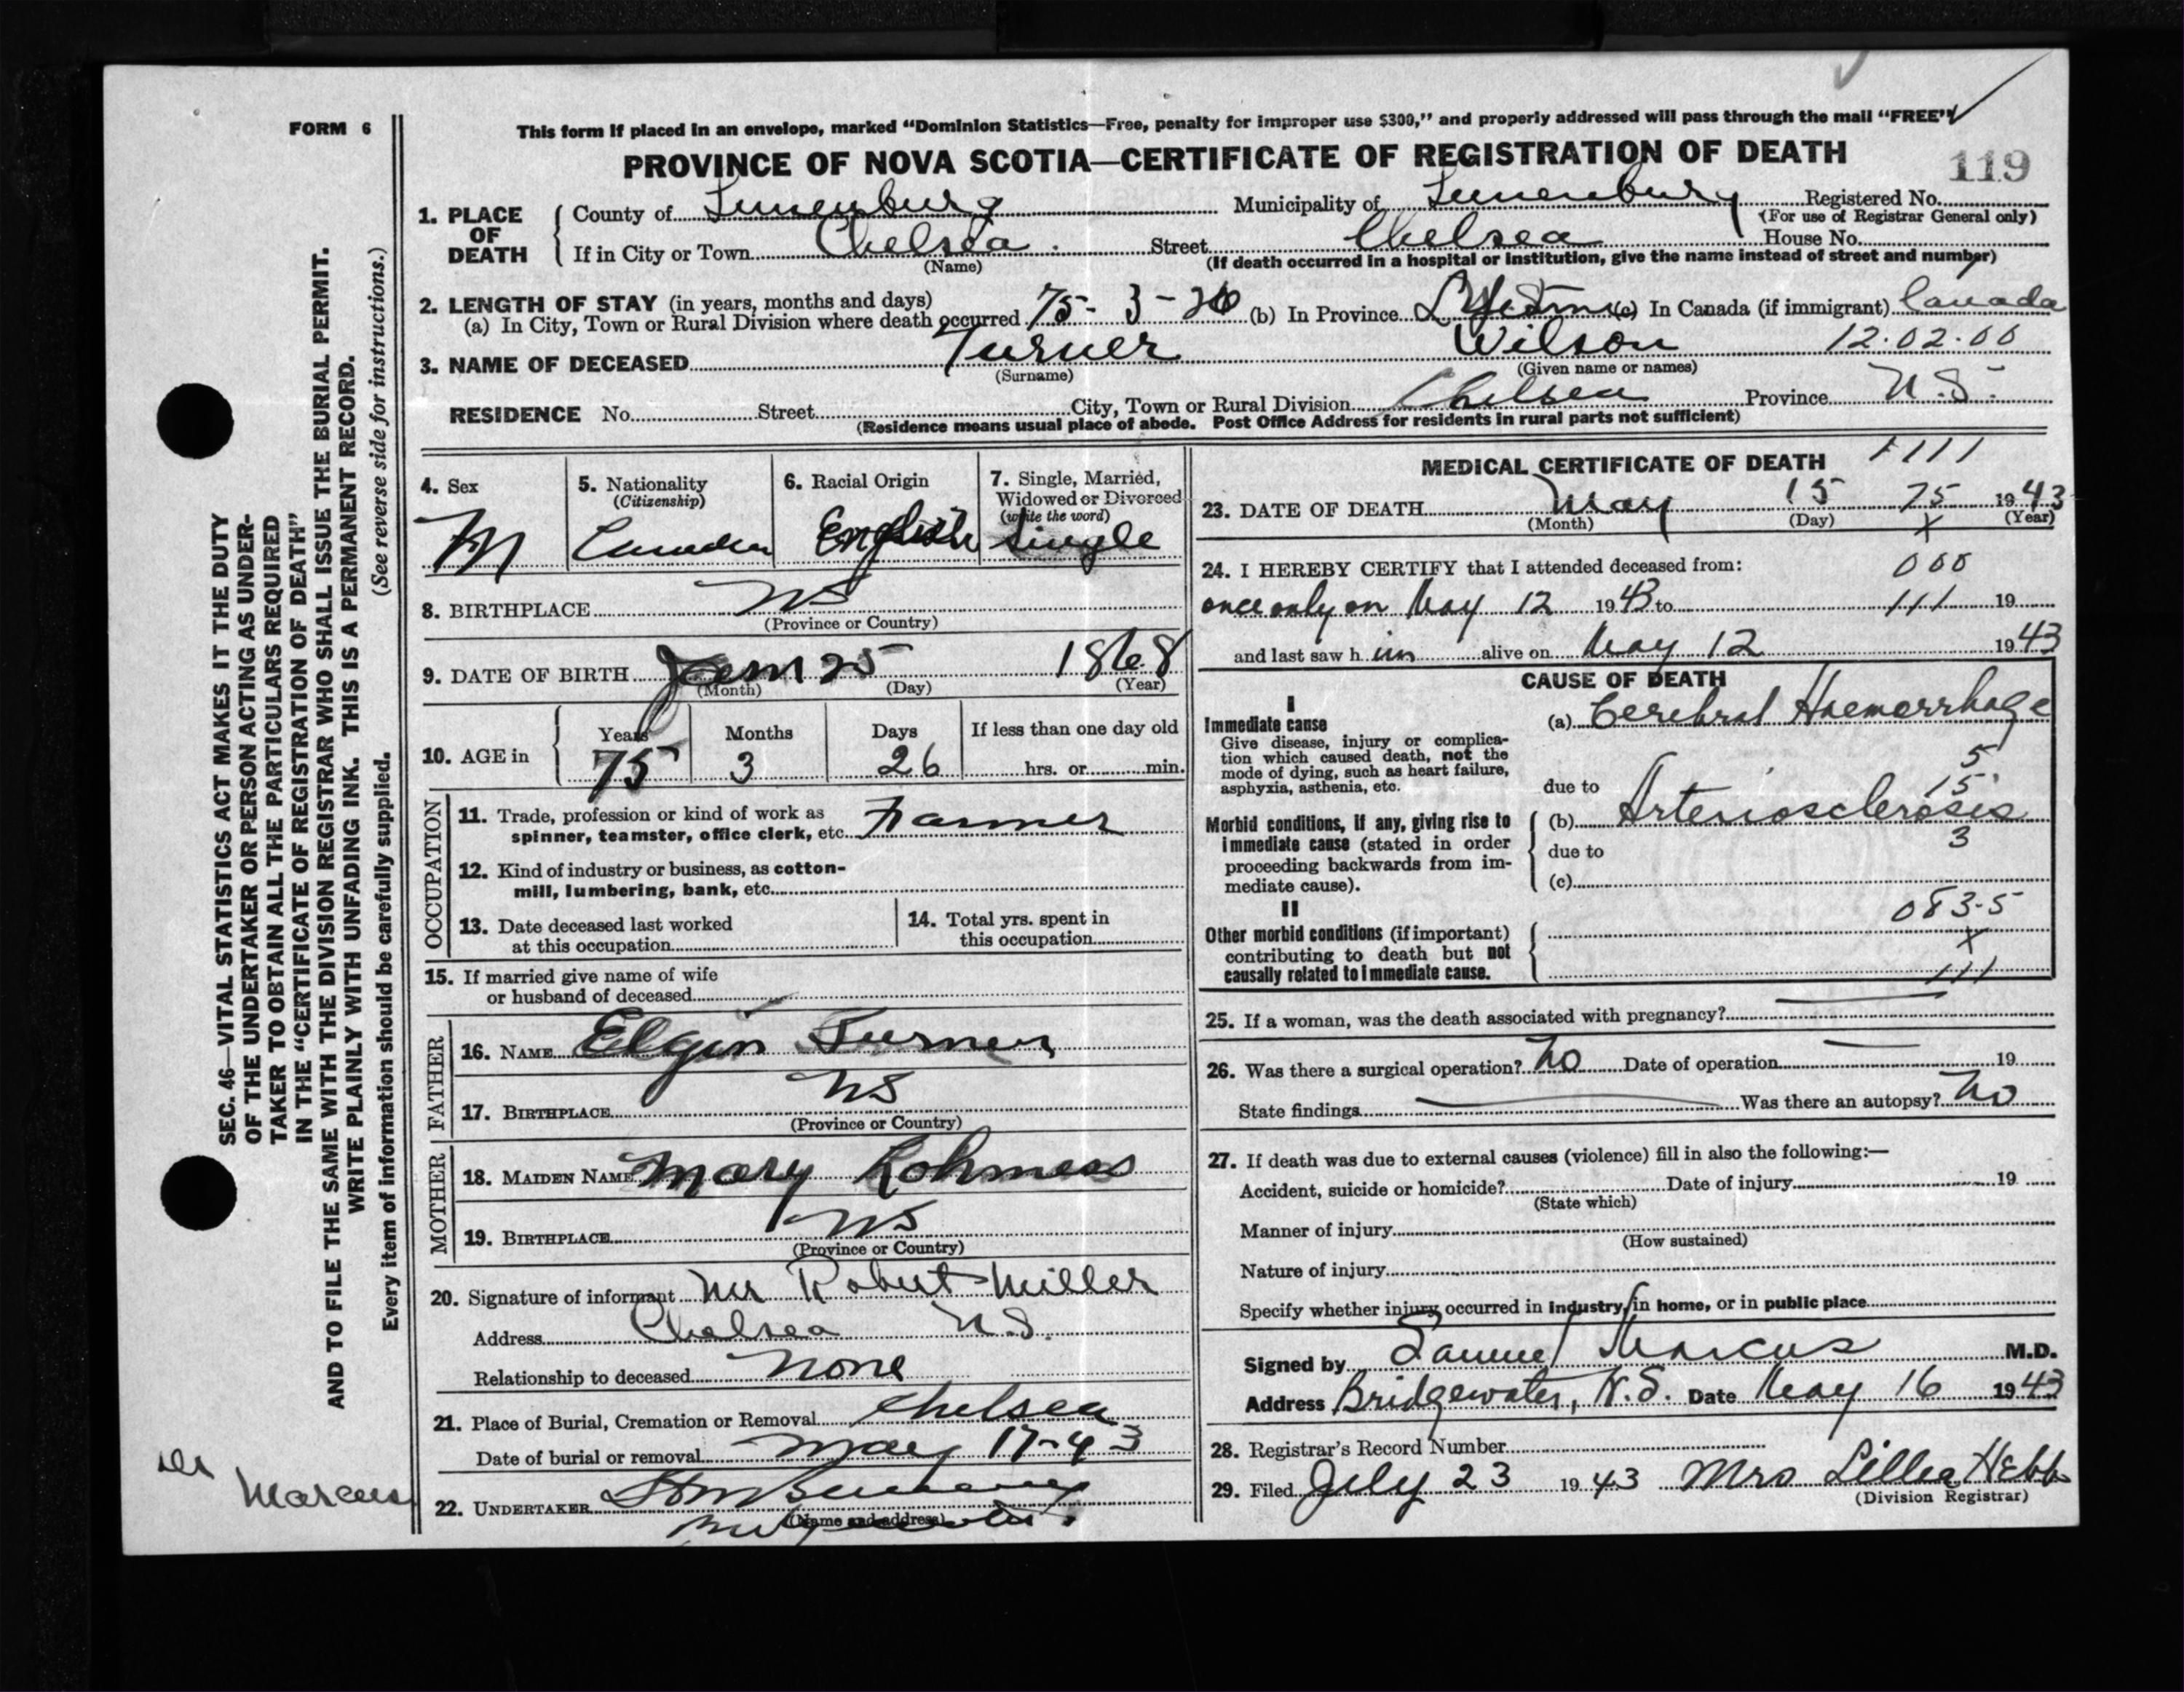 FORM 6
This form if placed in an envelope, marked "Dominion Statistics—Free, penalty for improper use $300," and properly addressed will pass through the mail "FREE"
PROVINCE OF NOVA SCOTIA—CERTIFICATE OF REGISTRATION OF DEATH
119
1. PLACE OF DEATH
County of Lunenburg Municipality of Lunenburg Registered No.
(For use of Registrar General only)
If in City or Town Chelsea Street Chelsea House No.
(Name)
(If death occurred in a hospital or institution, give the name instead of street and number)
2. LENGTH OF STAY (in years, months and days)
(a) In City, Town or Rural Division where death occurred 75-3-26 (b) In Province (c) In Canada (if immigrant) Canada
3. NAME OF DECEASED Turner Wilson 12.02.00
(Surname) (Given name or names)
RESIDENCE No. Street City, Town or Rural Division Chelsea Province N.S.
(Residence means usual place of abode. Post Office Address for residents in rural parts not sufficient)
4. Sex
M
5. Nationality
(Citizenship)
6. Racial Origin
English
7. Single, Married,
Widowed or Divorced
(write the word)
Single
8. BIRTHPLACE NS
(Province or Country)
9. DATE OF BIRTH 25 1868
(Month) (Day) (Year)
10. AGE in
Years Months Days If less than one day old
75 3 26 hrs. or min.
OCCUPATION
11. Trade, profession or kind of work as
spinner, teamster, office clerk, etc. Farmer
12. Kind of industry or business, as cotton-
mill, lumbering, bank, etc.
13. Date deceased last worked
at this occupation
14. Total yrs. spent in
this occupation
15. If married give name of wife
or husband of deceased
FATHER
16. NAME Elgin Turner
17. BIRTHPLACE NS
(Province or Country)
MOTHER
18. MAIDEN NAME Mary
19. BIRTHPLACE NS
(Province or Country)
20. Signature of informant Mr Robert Miller
Address Chelsea N.S.
Relationship to deceased None
21. Place of Burial, Cremation or Removal Chelsea
Date of burial or removal May 17-43
22. UNDERTAKER
(Name and address)
MEDICAL CERTIFICATE OF DEATH
1111
23. DATE OF DEATH May 15 75 1943
(Month) (Day) (Year)
X
24. I HEREBY CERTIFY that I attended deceased from:
000
once only on May 12 1943 to 111 19
and last saw him alive on May 12 1943
CAUSE OF DEATH
I
Immediate cause
Give disease, injury or complica-
tion which caused death, not the
mode of dying, such as heart failure,
asphyxia, asthenia, etc.
(a) Cerebral Haemorrhage
5
15
due to
Morbid conditions, if any, giving rise to
immediate cause (stated in order
proceeding backwards from im-
mediate cause).
(b) Arteriosclerosis
3
due to
(c)
083.5
II
Other morbid conditions (if important)
contributing to death but not
causally related to immediate cause.
X
111
25. If a woman, was the death associated with pregnancy?
26. Was there a surgical operation? No Date of operation 19
State findings Was there an autopsy? No
27. If death was due to external causes (violence) fill in also the following:—
Accident, suicide or homicide? Date of injury 19
(State which)
Manner of injury
(How sustained)
Nature of injury
Specify whether injury occurred in industry, in home, or in public place
Signed by Samuel Marcus M.D.
Address Bridgewater, N.S. Date May 16 1943
28. Registrar's Record Number
29. Filed July 23 1943 Mrs Lillia Hebb
(Division Registrar)
SEC. 46—VITAL STATISTICS ACT MAKES IT THE DUTY
OF THE UNDERTAKER OR PERSON ACTING AS UNDER-
TAKER TO OBTAIN ALL THE PARTICULARS REQUIRED
IN THE "CERTIFICATE OF REGISTRATION OF DEATH"
AND TO FILE THE SAME WITH THE DIVISION REGISTRAR WHO SHALL ISSUE THE BURIAL PERMIT.
WRITE PLAINLY WITH UNFADING INK. THIS IS A PERMANENT RECORD.
(See reverse side for instructions.)
Every item of information should be carefully supplied.
Dr
Marcus